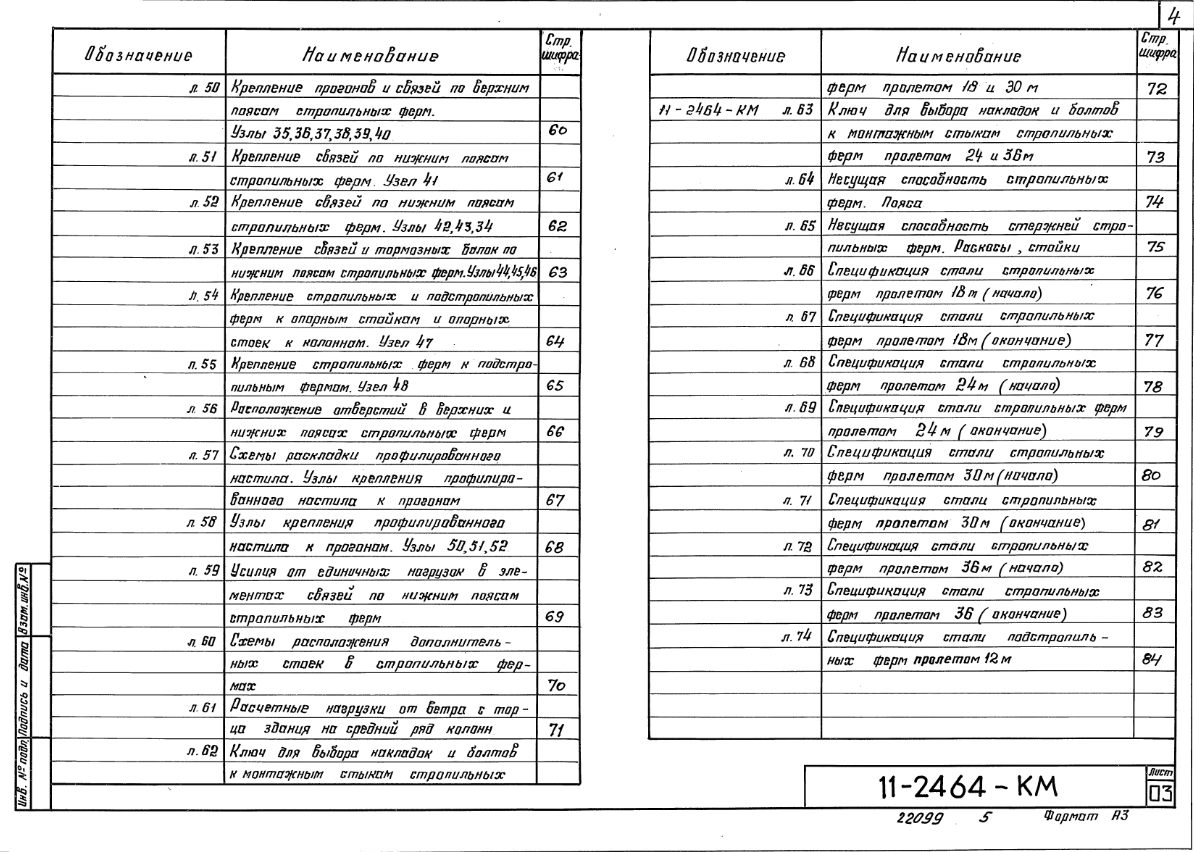 4
Обозначение Наименование Стр. шифра
л. 50 Крепление прогонов и связей по верхним
поясам стропильных ферм.
Узлы 35,36,37,38,39,40 60
л. 51 Крепление связей по нижним поясам
стропильных ферм. Узел 41 61
л. 52 Крепление связей по нижним поясам
стропильных ферм. Узлы 42,43,34 62
л. 53 Крепление связей и тормозных балок по
нижним поясам стропильных ферм. Узлы 44,45,46 63
л. 54 Крепление стропильных и подстропильных
ферм к опорным стойкам и опорных
стоек к колоннам. Узел 47 64
л. 55 Крепление стропильных ферм к подстро-
пильным фермам. Узел 48 65
л. 56 Расположение отверстий в верхних и
нижних поясах стропильных ферм 66
л. 57 Схемы раскладки профилированного
настила. Узлы крепления профилиро-
ванного настила к прогонам 67
л. 58 Узлы крепления профилированного
настила к прогонам. Узлы 50,51,52 68
л. 59 Усилия от единичных нагрузок в эле-
ментах связей по нижним поясам
стропильных ферм 69
л. 60 Схемы расположения дополнитель-
ных стоек в стропильных фер-
мах 70
л. 61 Расчетные нагрузки от ветра с тор-
ца здания на средний ряд колонн 71
л. 62 Ключ для выбора накладок и болтов
к монтажным стыкам стропильных
Обозначение Наименование Стр. шифра
ферм пролетом 18 и 30 м 72
11-2464-КМ л. 63 Ключ для выбора накладок и болтов
к монтажным стыкам стропильных
ферм пролетом 24 и 36м 73
л. 64 Несущая способность стропильных
ферм. Пояса 74
л. 65 Несущая способность стержней стро-
пильных ферм. Раскосы, стойки 75
л. 66 Спецификация стали стропильных
ферм пролетом 18м (начало) 76
л. 67 Спецификация стали стропильных
ферм пролетом 18м (окончание) 77
л. 68 Спецификация стали стропильных
ферм пролетом 24м (начало) 78
л. 69 Спецификация стали стропильных ферм
пролетом 24м (окончание) 79
л. 70 Спецификация стали стропильных
ферм пролетом 30м (начало) 80
л. 71 Спецификация стали стропильных
ферм пролетом 30м (окончание) 81
л. 72 Спецификация стали стропильных
ферм пролетом 36м (начало) 82
л. 73 Спецификация стали стропильных
ферм пролетом 36 (окончание) 83
л. 74 Спецификация стали подстропиль-
ных ферм пролетом 12м 84
Инв. № подл. Подпись и дата Взам. инв. №
11-2464-КМ
Лист
03
22099 5 Формат А3